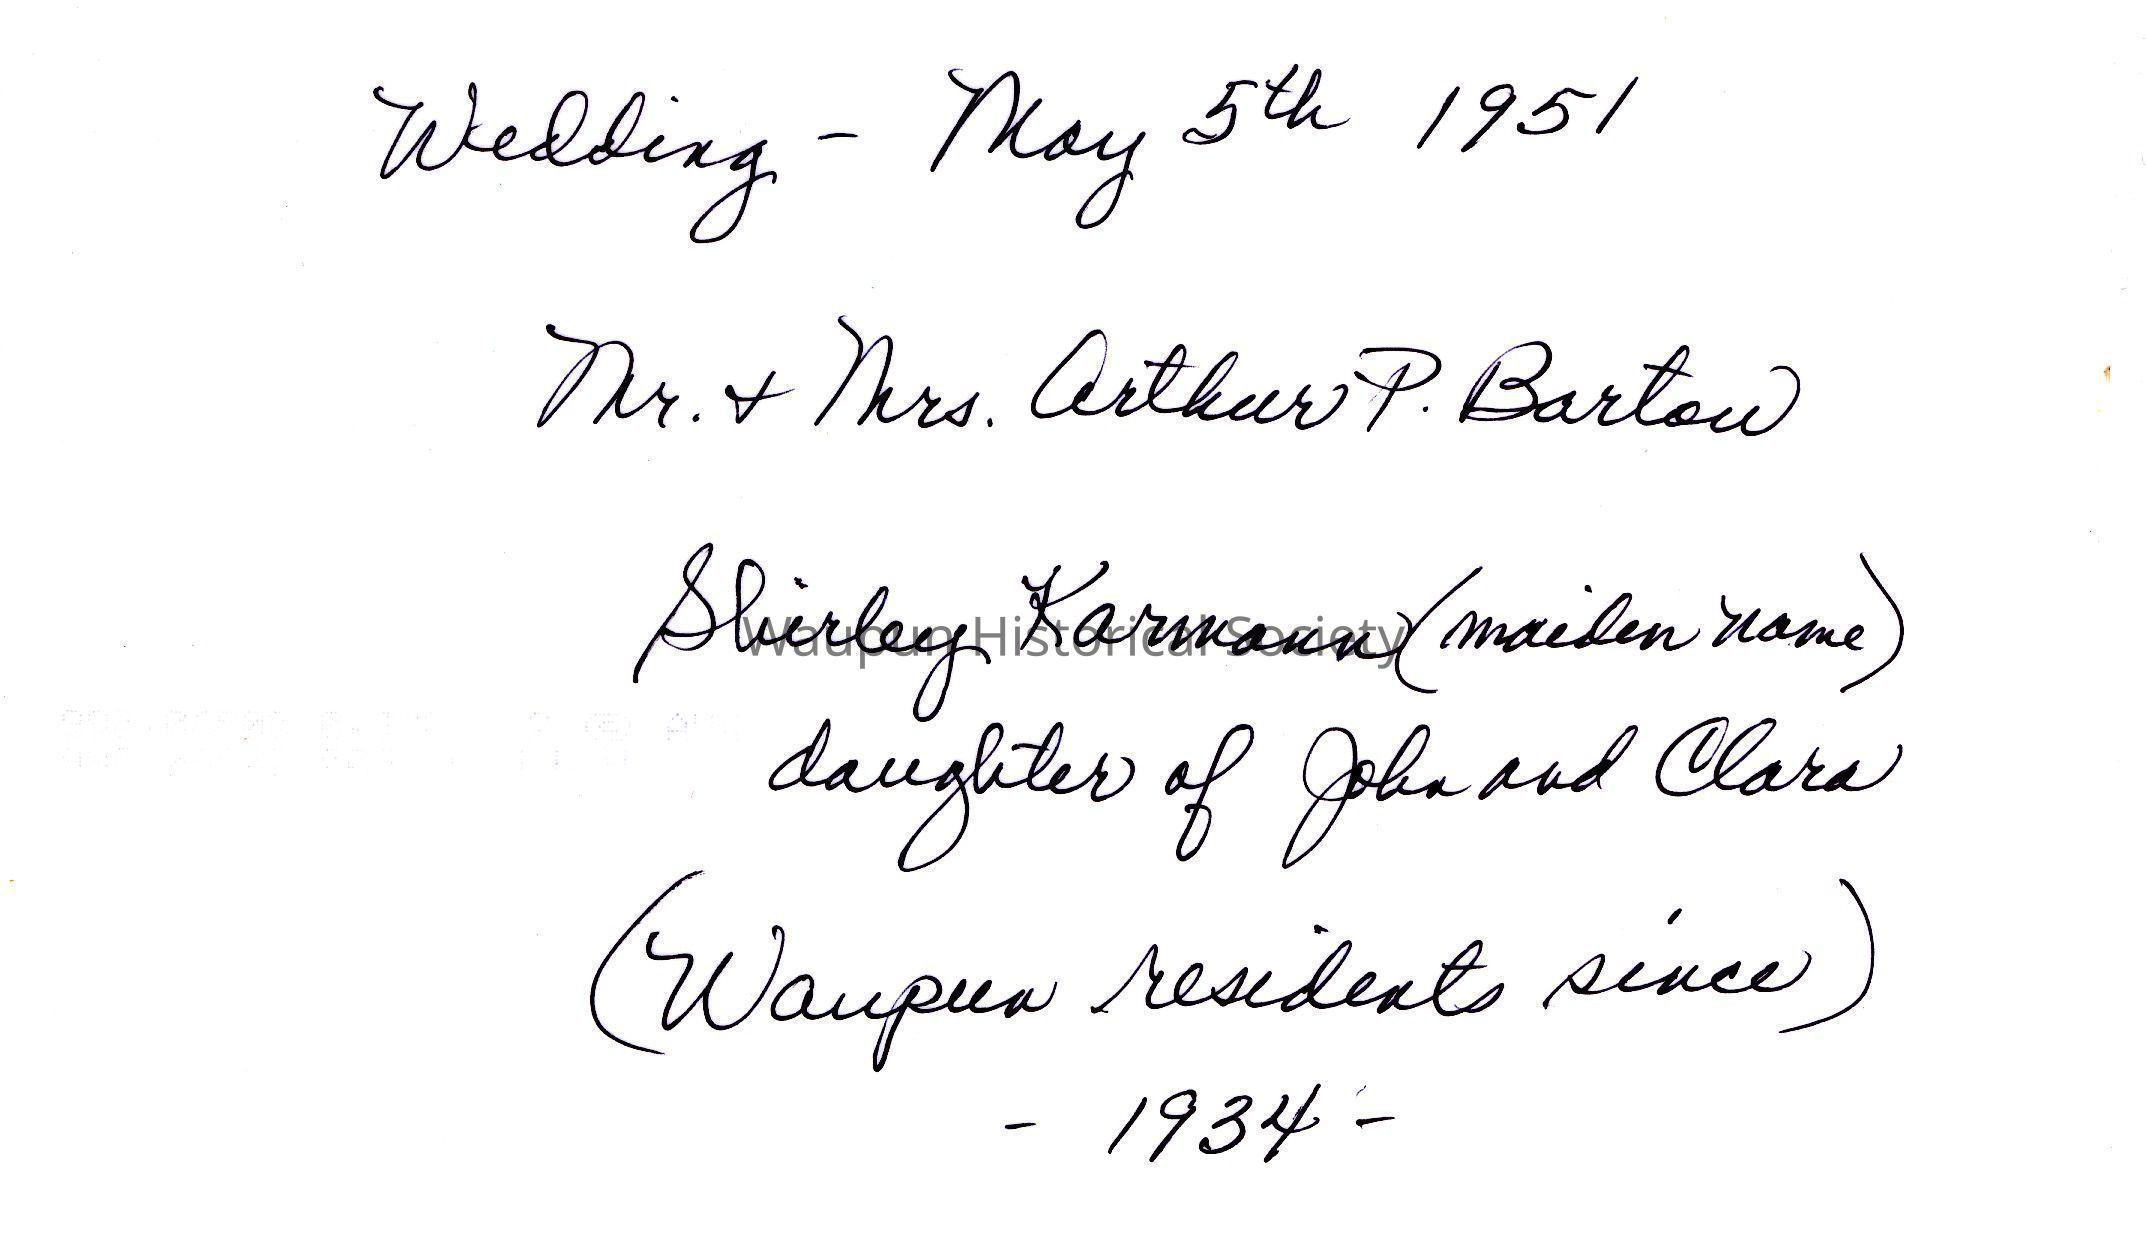 Wedding - May 5th 1951
Mr. + Mrs. Arthur P. Bartow
Shirley Karmann (maiden name)
Waupun Historical Society
daughter of John and Clara
(Waupun residents since)
- 1934 -